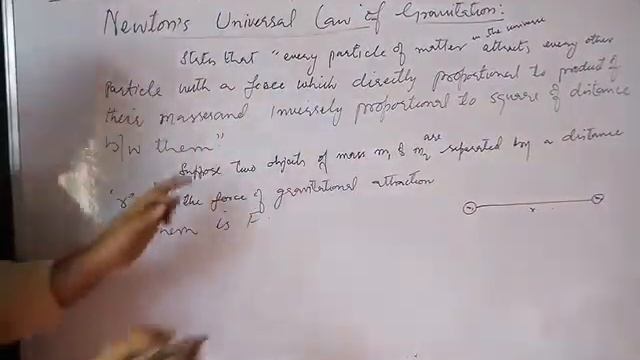 Newton's Universal Law of Gravitation:
States that "every particle of matter in the universe attracts every other
particle with a force which directly proportional to product of
their masses and inversely proportional to square of distance
b/w them"
Suppose two objects of mass m1 & m2 are separated by a distance
'r' the force of gravitational attraction
is F.
r